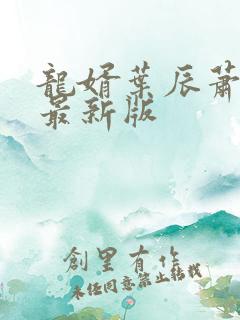 龍婿葉辰蕭
最新版
創里有作
未经同意禁止转载